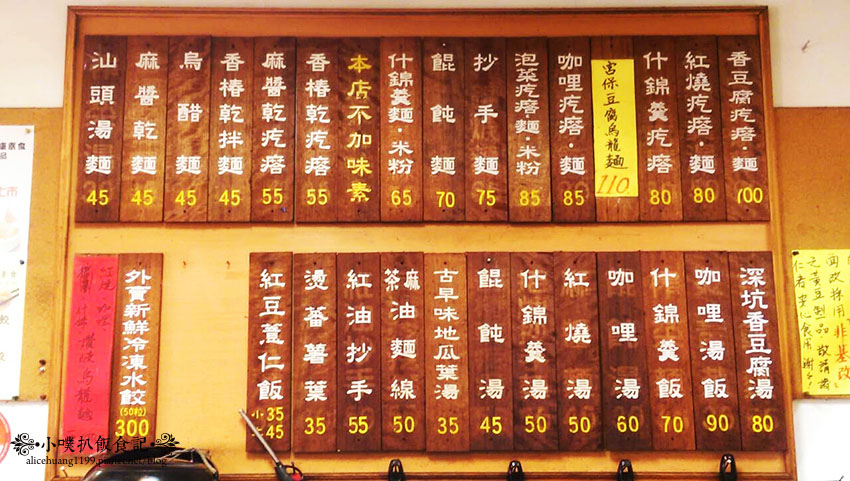 香豆腐疙瘩・麵 100
紅燒疙瘩・麵 80
什錦羹疙瘩 80
宮保豆腐烏龍麵 110
咖哩疙瘩・麵 85
泡菜疙瘩・麵・米粉 85
抄手麵 75
餛飩麵 70
什錦羹麵・米粉 65
本店不加味素
香椿乾疙瘩 55
麻醬乾疙瘩 55
香椿乾拌麵 45
烏醋麵 45
麻醬乾麵 45
汕頭湯麵 45
深坑香豆腐湯 80
咖哩湯飯 90
什錦羹飯 70
咖哩湯 60
紅燒湯 50
什錦羹湯 50
餛飩湯 45
古早味地瓜葉湯 35
麻
茶油麵線 50
紅油抄手 55
燙蕃薯葉 35
紅豆薏仁飯
小35
大45
外賣新鮮冷凍水餃
(50粒)
300
小噗扒飯食記
alicehuang1199.pixnet.net/blog